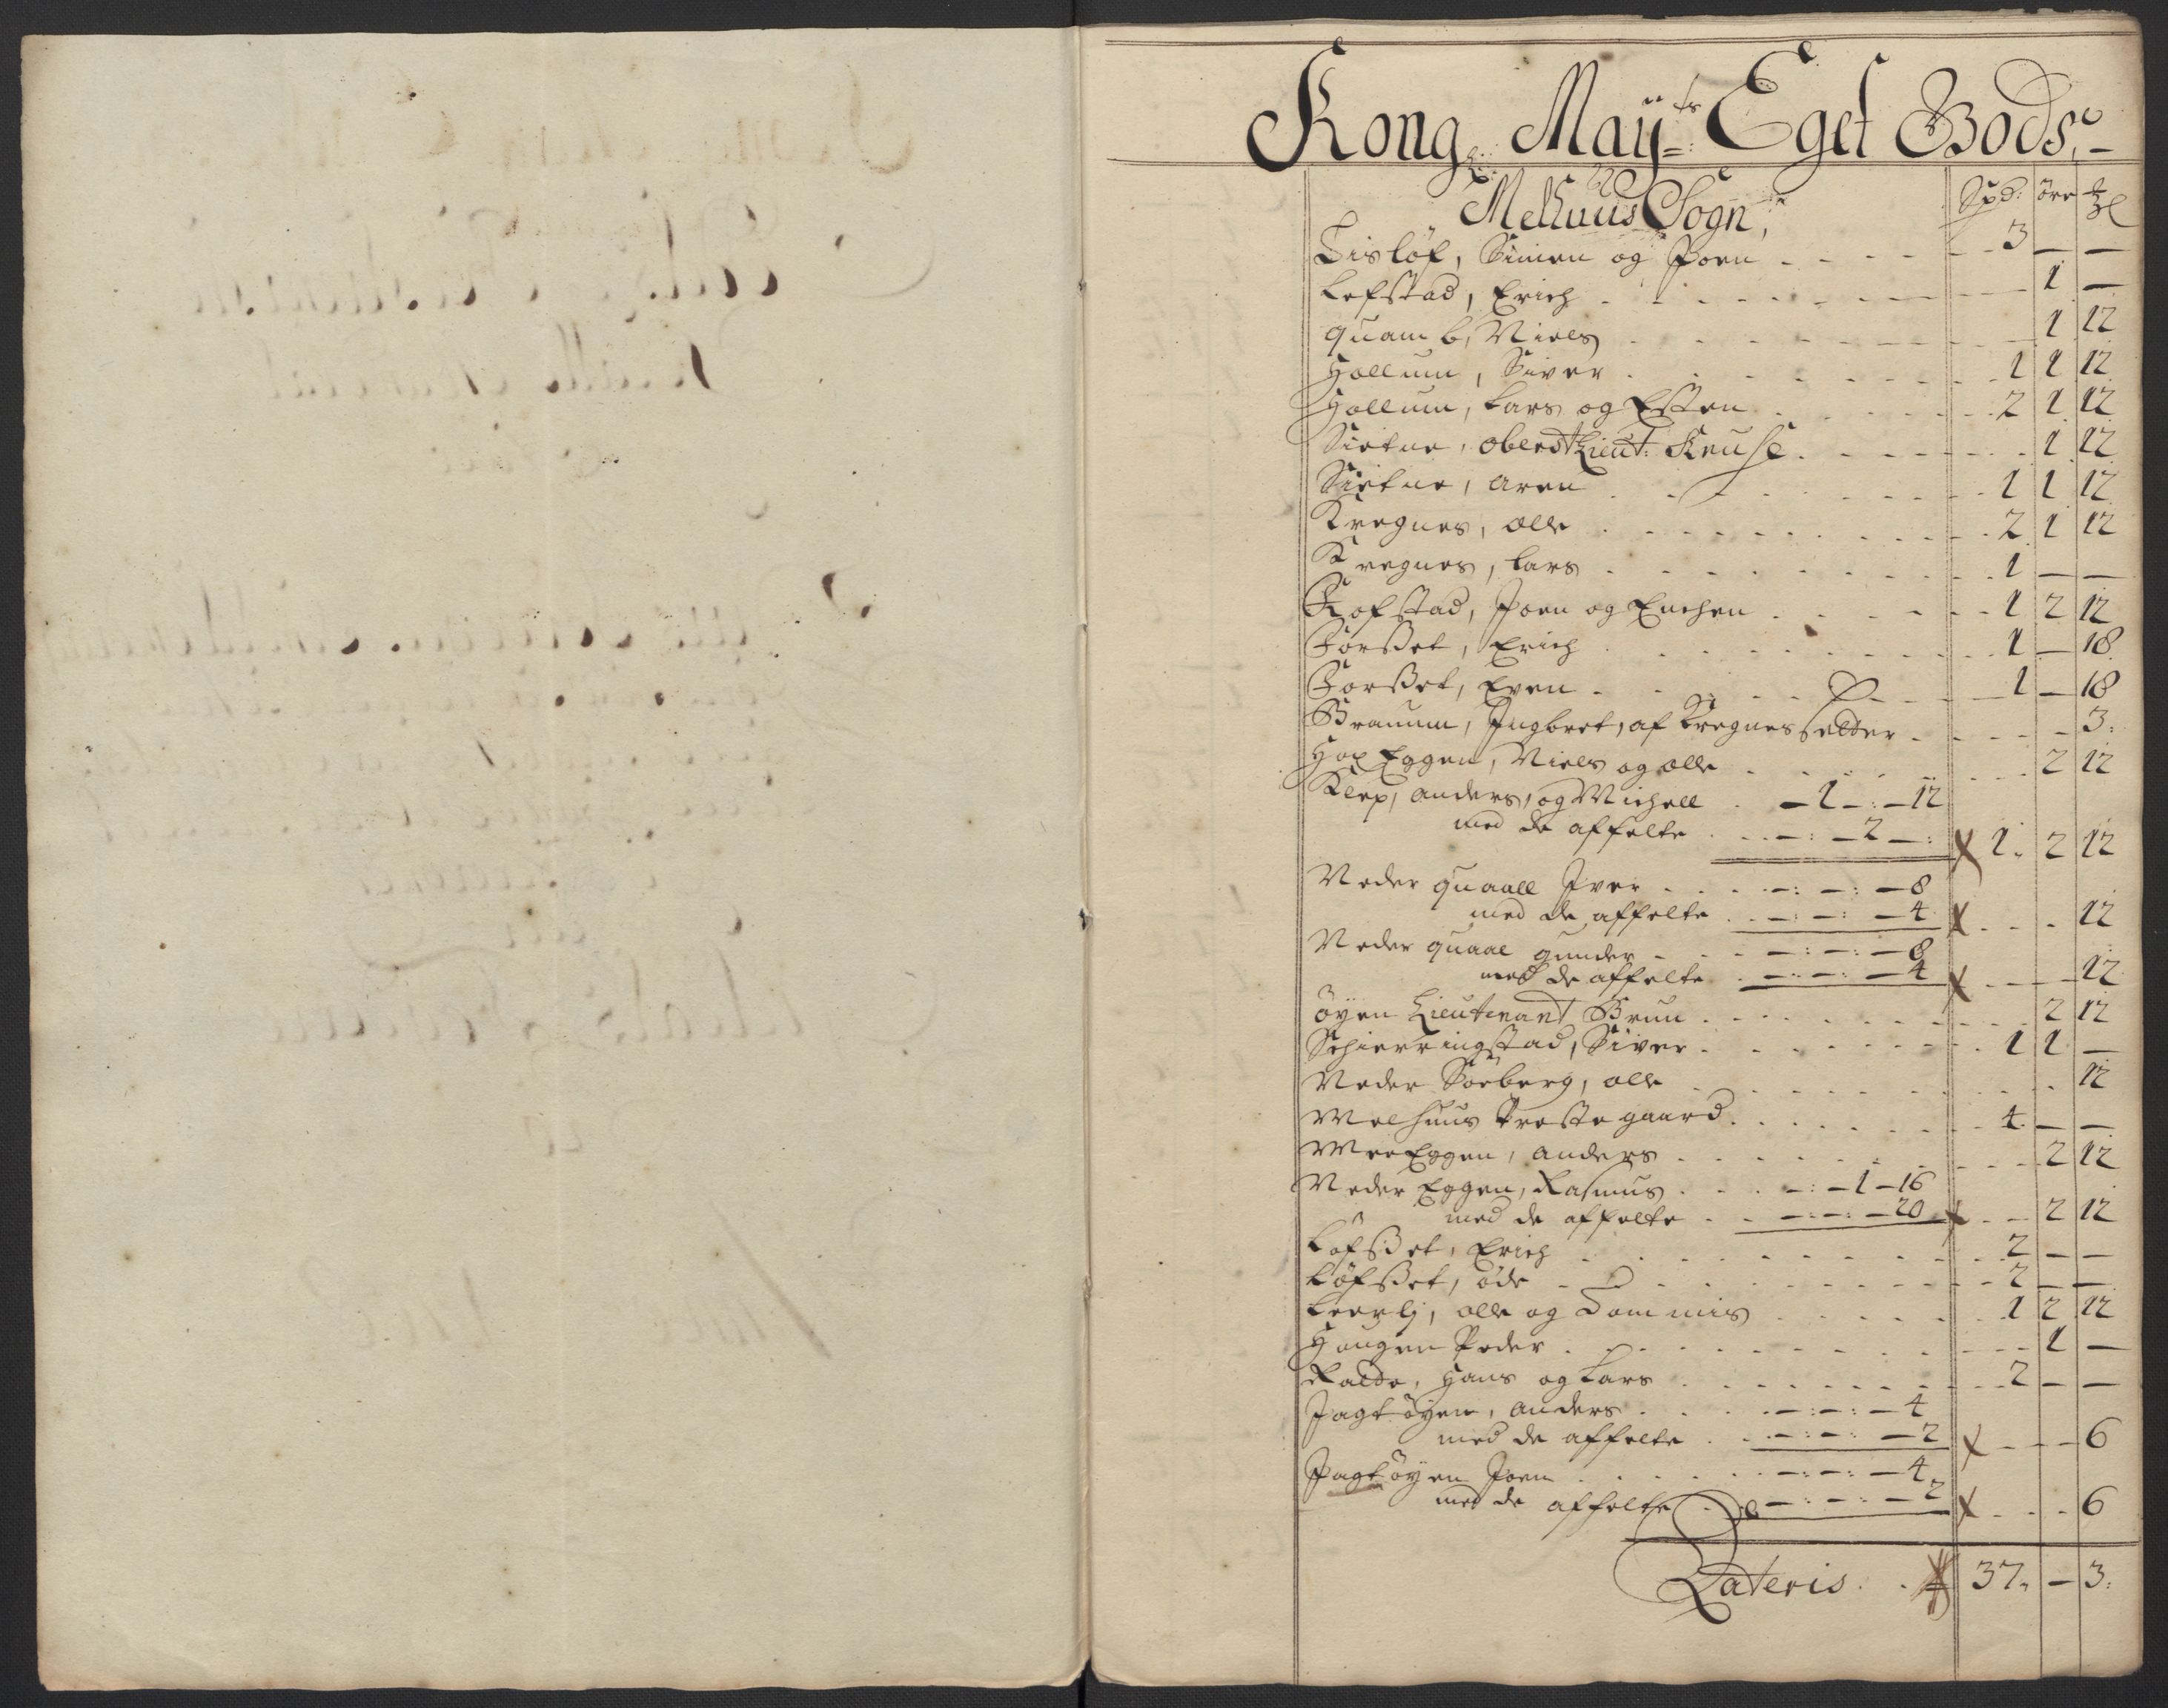 Kong: Maÿ:ts Eget Gods,
Melhuus Sogn, Spd: öre
Gisløf, Simen og Joen . . . 3 — —
Lefstad, Erich . . . 1 —
Quamb, Niels . . . 1 12
Hollum, Siver . . . 1 1 12
Hollum, Lars og Esten . . . 2 1 12
Sietne, oberst Lieut: Kruse . . . 1 12
Sietne, Aren . . . 1 1 12
Kregnes, Olle . . . 2 1 12
Kregnes, Lars . . . 1 — —
Hofstad, Joen og Enchen . . . 1 2 12
Forsset, Erich . . . 1 — 18
Forsset, Even . . . 1 — 18
Braunm, Ingbret, af Kregnes setter . . . 3:
Hog Eggen, Niels og Olle . . . 2 12
Klep, Anders, og Michell . — 1 — : — 12
med de affelte . . — : — 2 — : X 1. 2 12
Neder quaall Iver . . . — : — : — 8
med de affelte . — : — : — 4 X . . . 12
Neder quaal gunder . — : — : — 8
med de affelte . — : — : — 4 X — 12
öyen Lieutenant Brun . . . 2 12
Schierringstad, Siver . . . 1 1 —
Neder Söeberg, olle . . . 12
Melhuus Prestegaard . . . 4. — —
Mee Eggen, Anders . . . 2 12
Neder Eggen, Rasmus . . . — : — 1 — 16
med de affelte . . — : — : — 20 X . . 2 12
Löfsset, Erich . . . 2 — —
Löfsset, öde . . . 2 — —
Leerlj, olle og Tommis . . . 1 2 12
Haugen Peder . . . 1 —
Raede, Hans og Lars . . . 2 — —
Jagtöyen, Anders . . . — : — : — 4
med de affelte . . — : — : — 2 X . . . 6
Jagtöyen Joen . . . — : — : — 4.
med de affelte . . — : — : — 2 X . . . 6
Lateris . . 37. — 3: